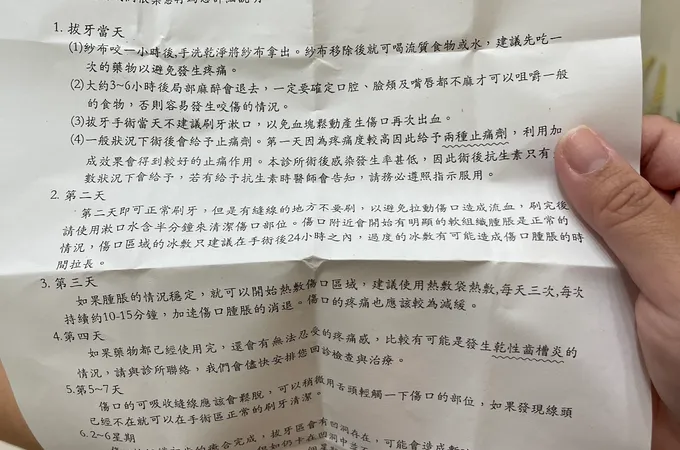 1. 拔牙當天
(1)紗布咬一小時後,手洗乾淨將紗布拿出。紗布移除後就可喝流質食物或水，建議先吃一
次的藥物以避免發生疼痛。
(2)大約3~6小時後局部麻醉會退去，一定要確定口腔、臉頰及嘴唇都不麻才可以咀嚼一般
的食物，否則容易發生咬傷的情況。
(3)拔牙手術當天不建議刷牙漱口，以免血塊鬆動產生傷口再次出血。
(4)一般狀況下術後會給予止痛劑。第一天因為疼痛度較高因此給予兩種止痛劑，利用加
成效果會得到較好的止痛作用。本診所術後感染發生率甚低，因此術後抗生素只有
數狀況下會給予，若有給予抗生素時醫師會告知，請務必遵照指示服用。
2. 第二天
第二天即可正常刷牙，但是有縫線的地方不要刷，以避免拉動傷口造成流血，刷完後
請使用漱口水含半分鐘來清潔傷口部位。傷口附近會開始有明顯的軟組織腫脹是正常的
情況，傷口區域的冰敷只建議在手術後24小時之內，過度的冰敷有可能造成傷口腫脹的時
間拉長。
3. 第三天
如果腫脹的情況穩定，就可以開始熱敷傷口區域，建議使用熱敷袋熱敷,每天三次,每次
持續約10-15分鐘，加速傷口腫脹的消退。傷口的疼痛也應該較為減緩。
4.第四天
如果藥物都已經使用完，還會有無法忍受的疼痛感，比較有可能是發生乾性齒槽炎的
情況，請與診所聯絡，我們會儘快安排您回診檢查與治療。
5.第5~7天
傷口的可吸收縫線應該會鬆脫，可以稍微用舌頭輕觸一下傷口的部位，如果發現線頭
已經不在就可以在手術區正常的刷牙清潔。
6.2~6星期
癒合完成，拔牙區會有凹洞存在，可能會造成